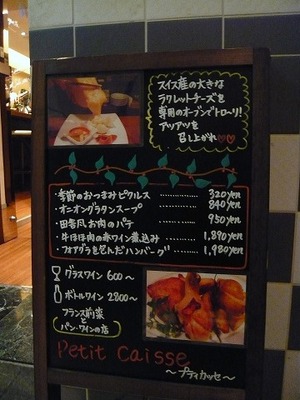 スイス産の大きな
ラクレットチーズを
専用のオーブンでトローリ!
アツアツを
召し上がれ♡♡
・季節のおつまみピクルス ………… 320yen
・オニオングラタンスープ ………… 840yen
・田舎風お肉のパテ ………… 950yen
・牛ほほ肉の赤ワイン煮込み … 1,890yen
・フォアグラを包んだハンバーグ … 1,980yen
グラスワイン 600〜
ボトルワイン 2800〜
フランス前菜
パン・ワインの店
Petit Caisse
〜プティカッセ〜